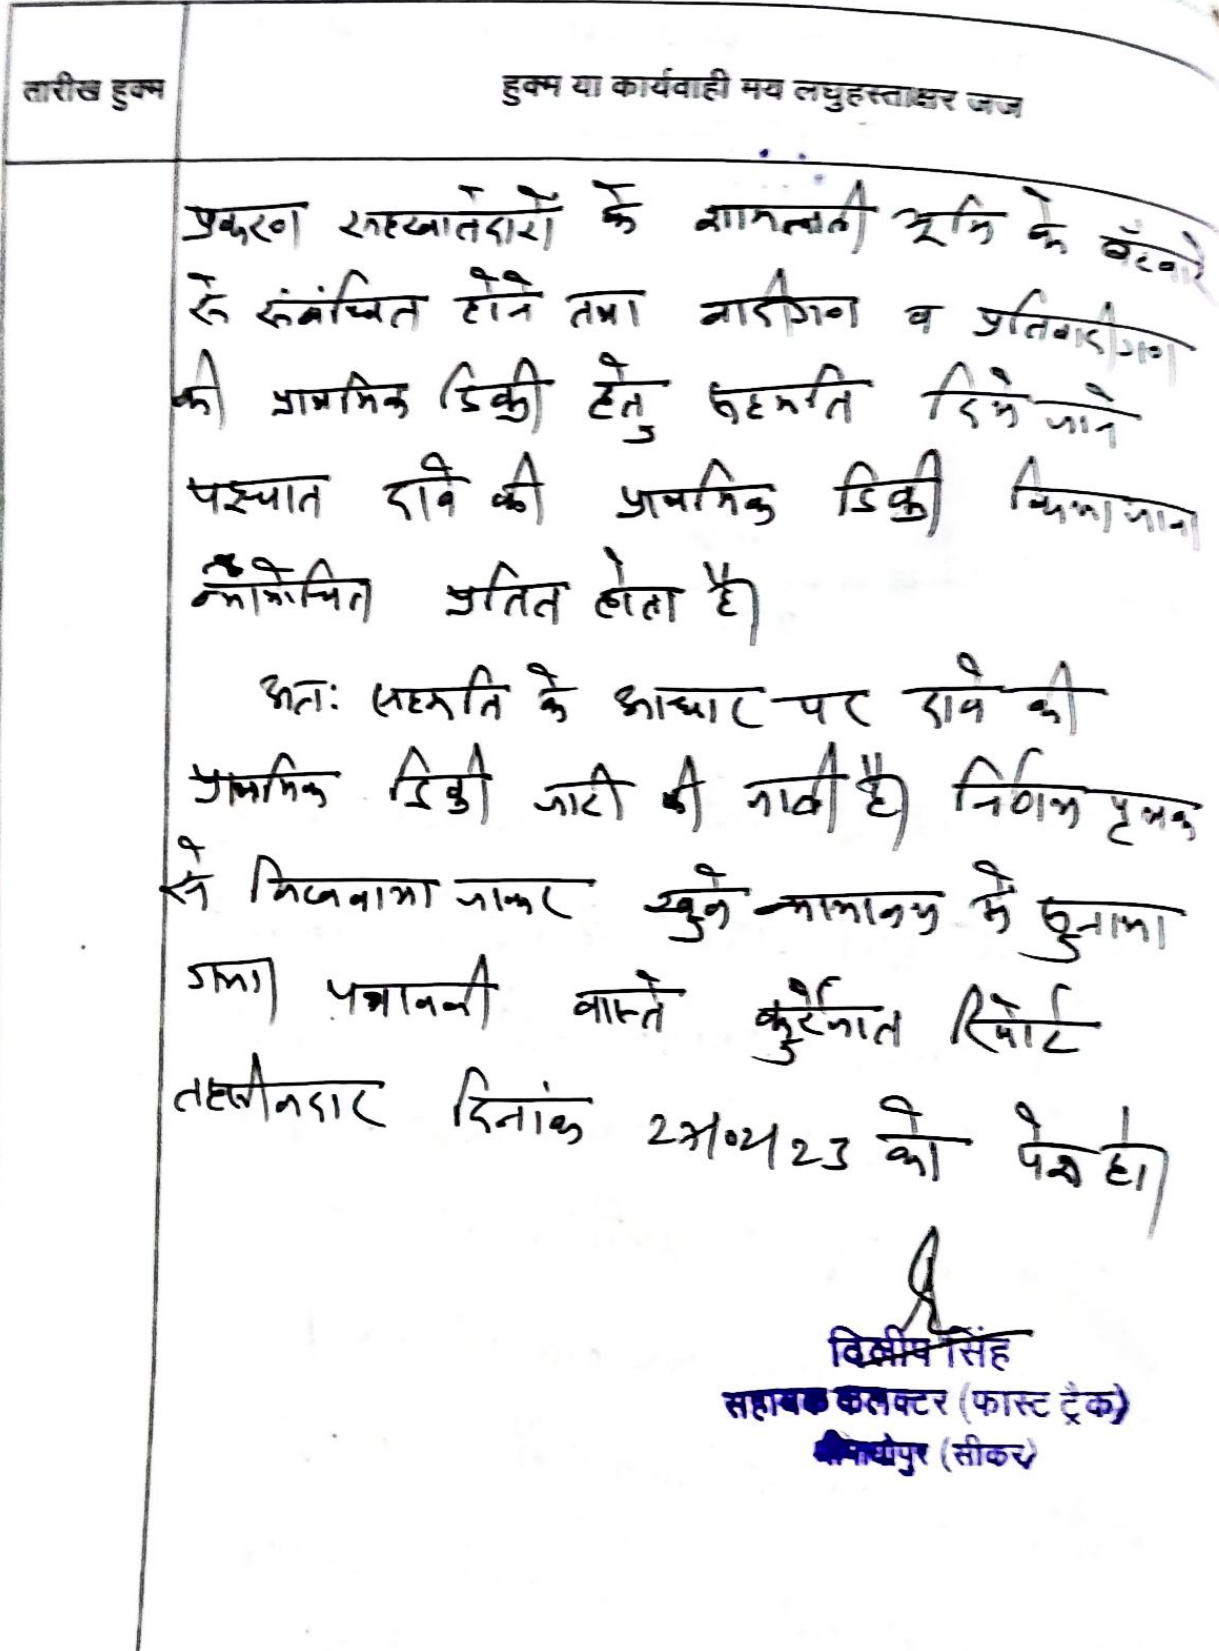 तारीख हुक्म
हुक्म या कार्यवाही मय लघुहस्ताक्षर जज
प्रकरण सहखातेदारों के शामलाती भूमि के बँटवारे
से संबंधित होने तथा वादीगण व प्रतिवादीगण
की प्राथमिक डिक्री हेतु सहमति दिये जाने
पश्चात दावे की प्राथमिक डिक्री किया जाना
न्यायोचित प्रतित होता है।
अतः सहमति के आधार पर दावे की
प्राथमिक डिक्री जारी की जाती है। निर्णय पृथक
से लिखवाया जाकर खुले न्यायालय में सुनाया
गया। पत्रावली वास्ते कुर्रेजात रिपोर्ट
तहसीलदार दिनांक को पेश हो।
दिलीप सिंह
सहायक कलक्टर (फास्ट ट्रैक)
(सीकर)